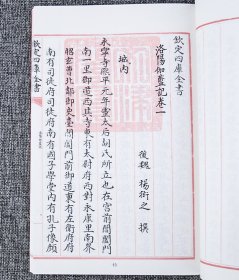 欽定四庫全書
洛陽伽藍記卷一
後魏 楊衒之 撰
城内
永寧寺熙平元年靈太后胡氏所立也在宫前閶闔門
南一里御道西其寺東有太尉府西對永康里南界
昭玄曹北鄰御史臺閶闔門前御道東有左衛府府
南有司徒府司徒府南有國子學堂内有孔子像顔
欽定四庫全書